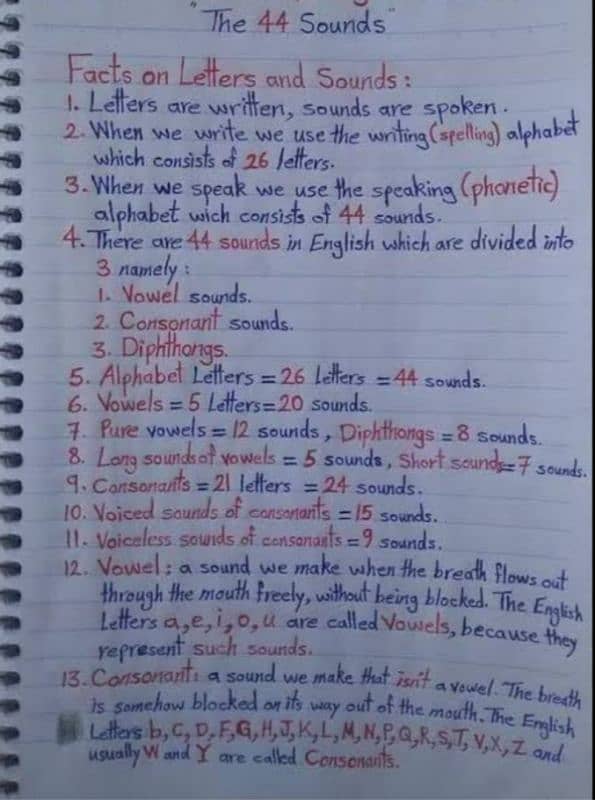 "The 44 Sounds"
Facts on Letters and Sounds:
1. Letters are written, sounds are spoken.
2. When we write we use the writing (spelling) alphabet
which consists of 26 letters.
3. When we speak we use the speaking (phonetic)
alphabet wich consists of 44 sounds.
4. There are 44 sounds in English which are divided into
3 namely:
1. Vowel sounds.
2. Consonant sounds.
3. Diphthongs.
5. Alphabet Letters = 26 letters = 44 sounds.
6. Vowels = 5 Letters = 20 sounds.
7. Pure vowels = 12 sounds, Diphthongs = 8 sounds.
8. Long sounds of vowels = 5 sounds, Short sounds = 7 sounds.
9. Consonants = 21 letters = 24 sounds.
10. Voiced sounds of consonants = 15 sounds.
11. Voiceless sounds of consonants = 9 sounds.
12. Vowel: a sound we make when the breath flows out
through the mouth freely, without being blocked. The English
Letters a, e, i, o, u are called Vowels, because they
represent such sounds.
13. Consonant: a sound we make that isn't a vowel. The breath
is somehow blocked on its way out of the mouth. The English
Letters b, C, D, F, G, H, J, K, L, M, N, P, Q, R, S, T, V, X, Z and
usually W and Y are called Consonants.